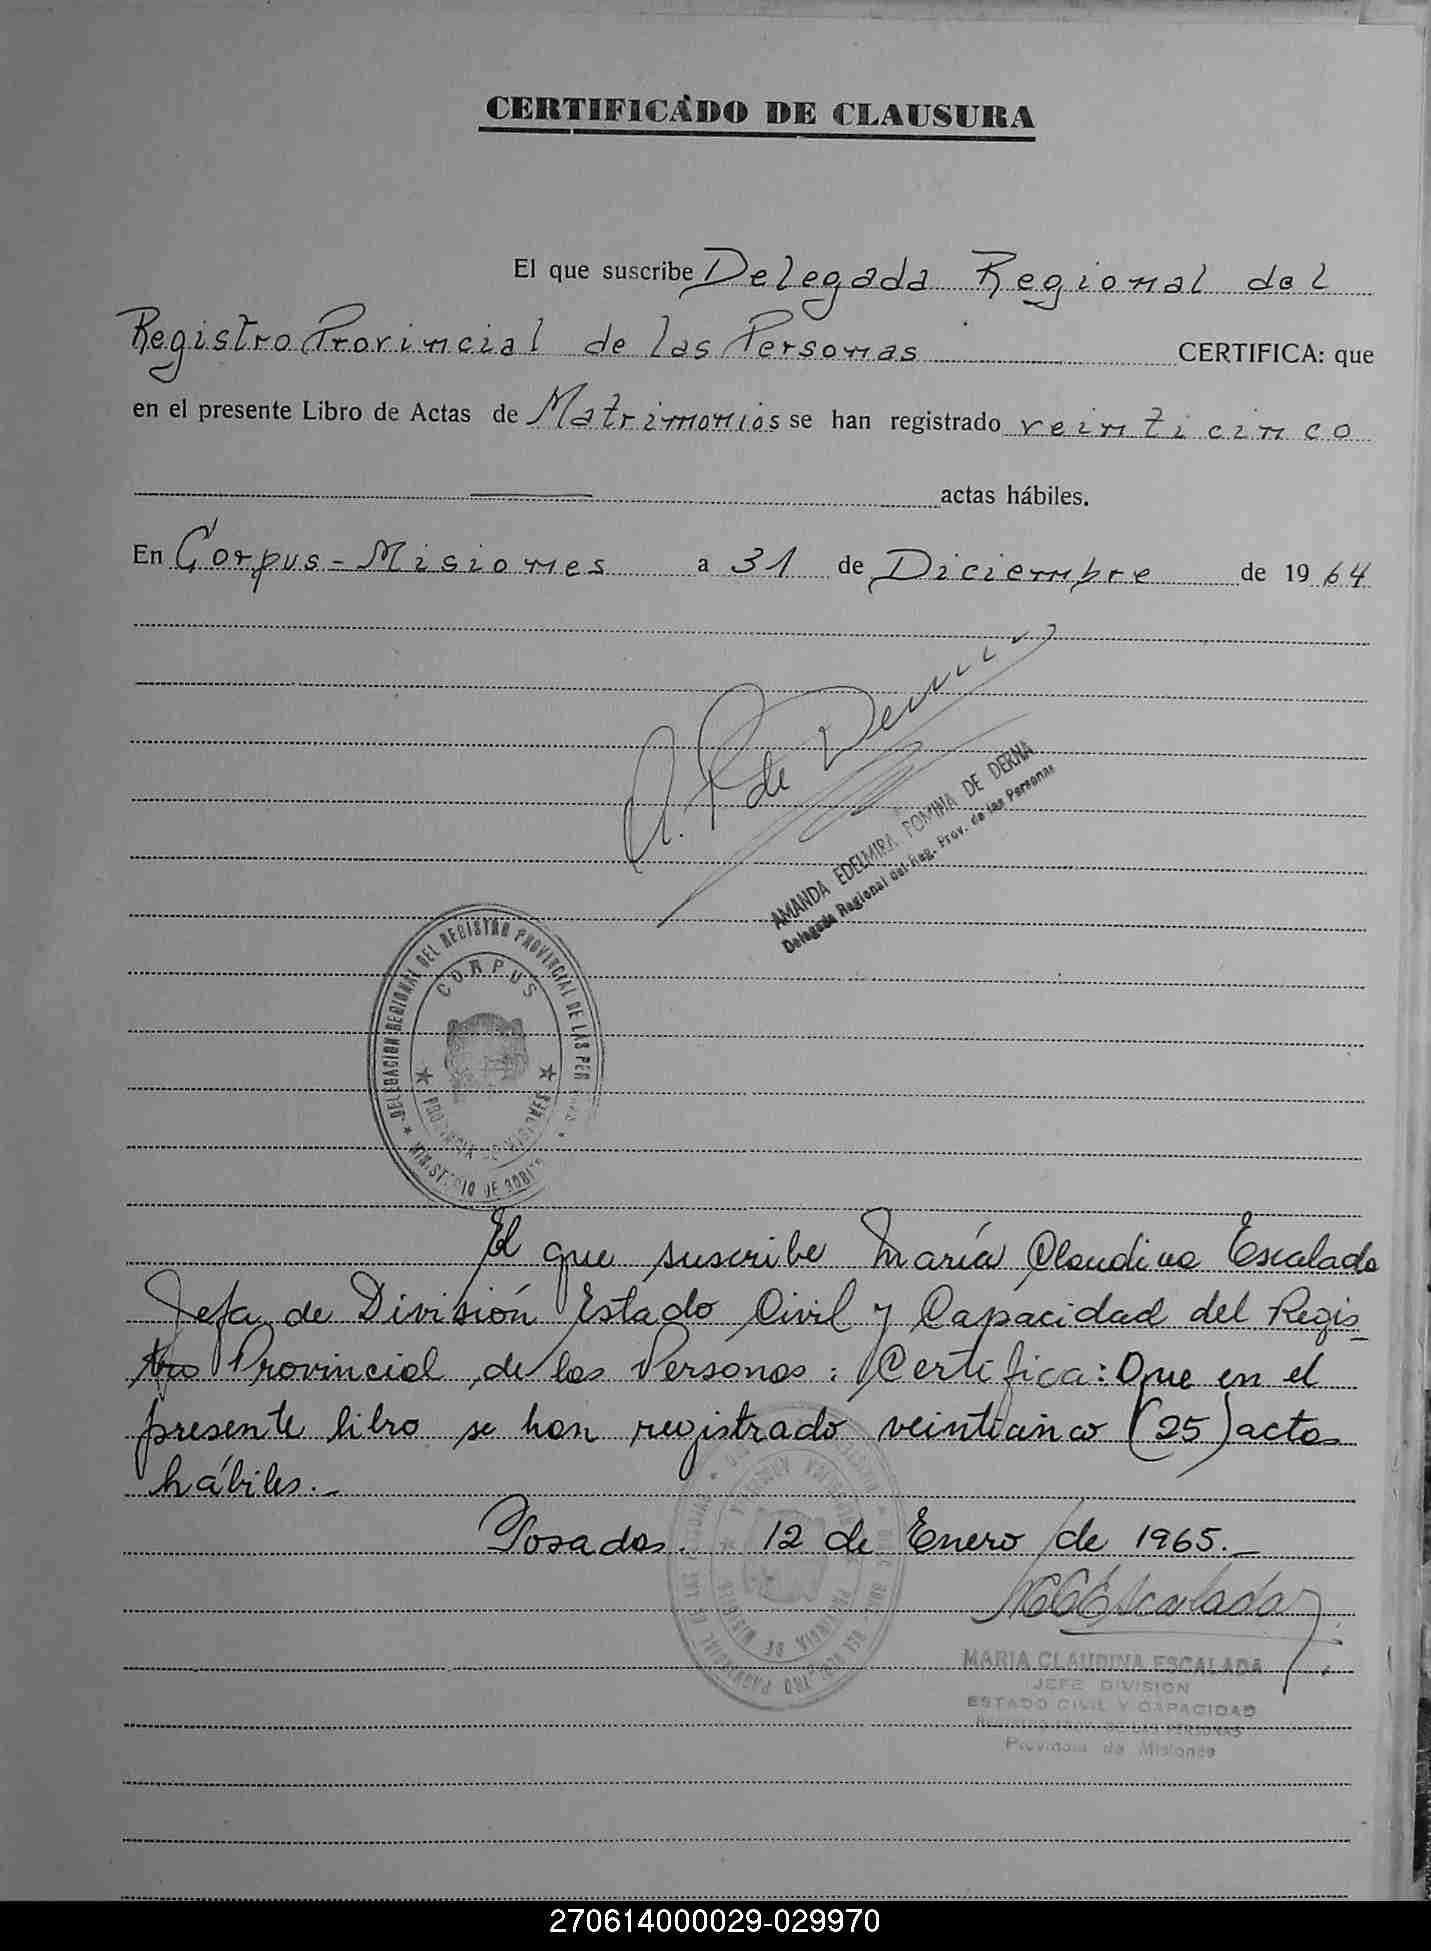 CERTIFICADO DE CLAUSURA
El que suscribe Delegada Regional del
Registro Provincial de las Personas CERTIFICA: que
en el presente Libro de Actas de Matrimonios se han registrado veinticinco
actas hábiles.
En Corpus - Misiones a 31 de Diciembre de 1964
A. P. de Derna
AMANDA EDELMIRA POMINA DE DERNA
Delegada Regional del Reg. Prov. de las Personas
DELEGACION REGIONAL DEL REGISTRO PROVINCIAL DE LAS PER
CORPUS
PROVINCIA DE MISIONES
MINISTERIO DE GOBIER
El que suscribe María Claudina Escalada
Jefa de División Estado Civil y Capacidad del Regis-
tro Provincial de las Personas: Certifica: Que en el
presente libro se han registrado veinticinco (25) actas
hábiles.-
Posadas. 12 de Enero de 1965.-
MCEscalada
PROVINCIA DE MISIONES
MARIA CLAUDINA ESCALADA
JEFE DIVISION
ESTADO CIVIL Y CAPACIDAD
REGISTRO PROV. DE LAS PERSONAS
Provincia de Misiones
270614000029-029970